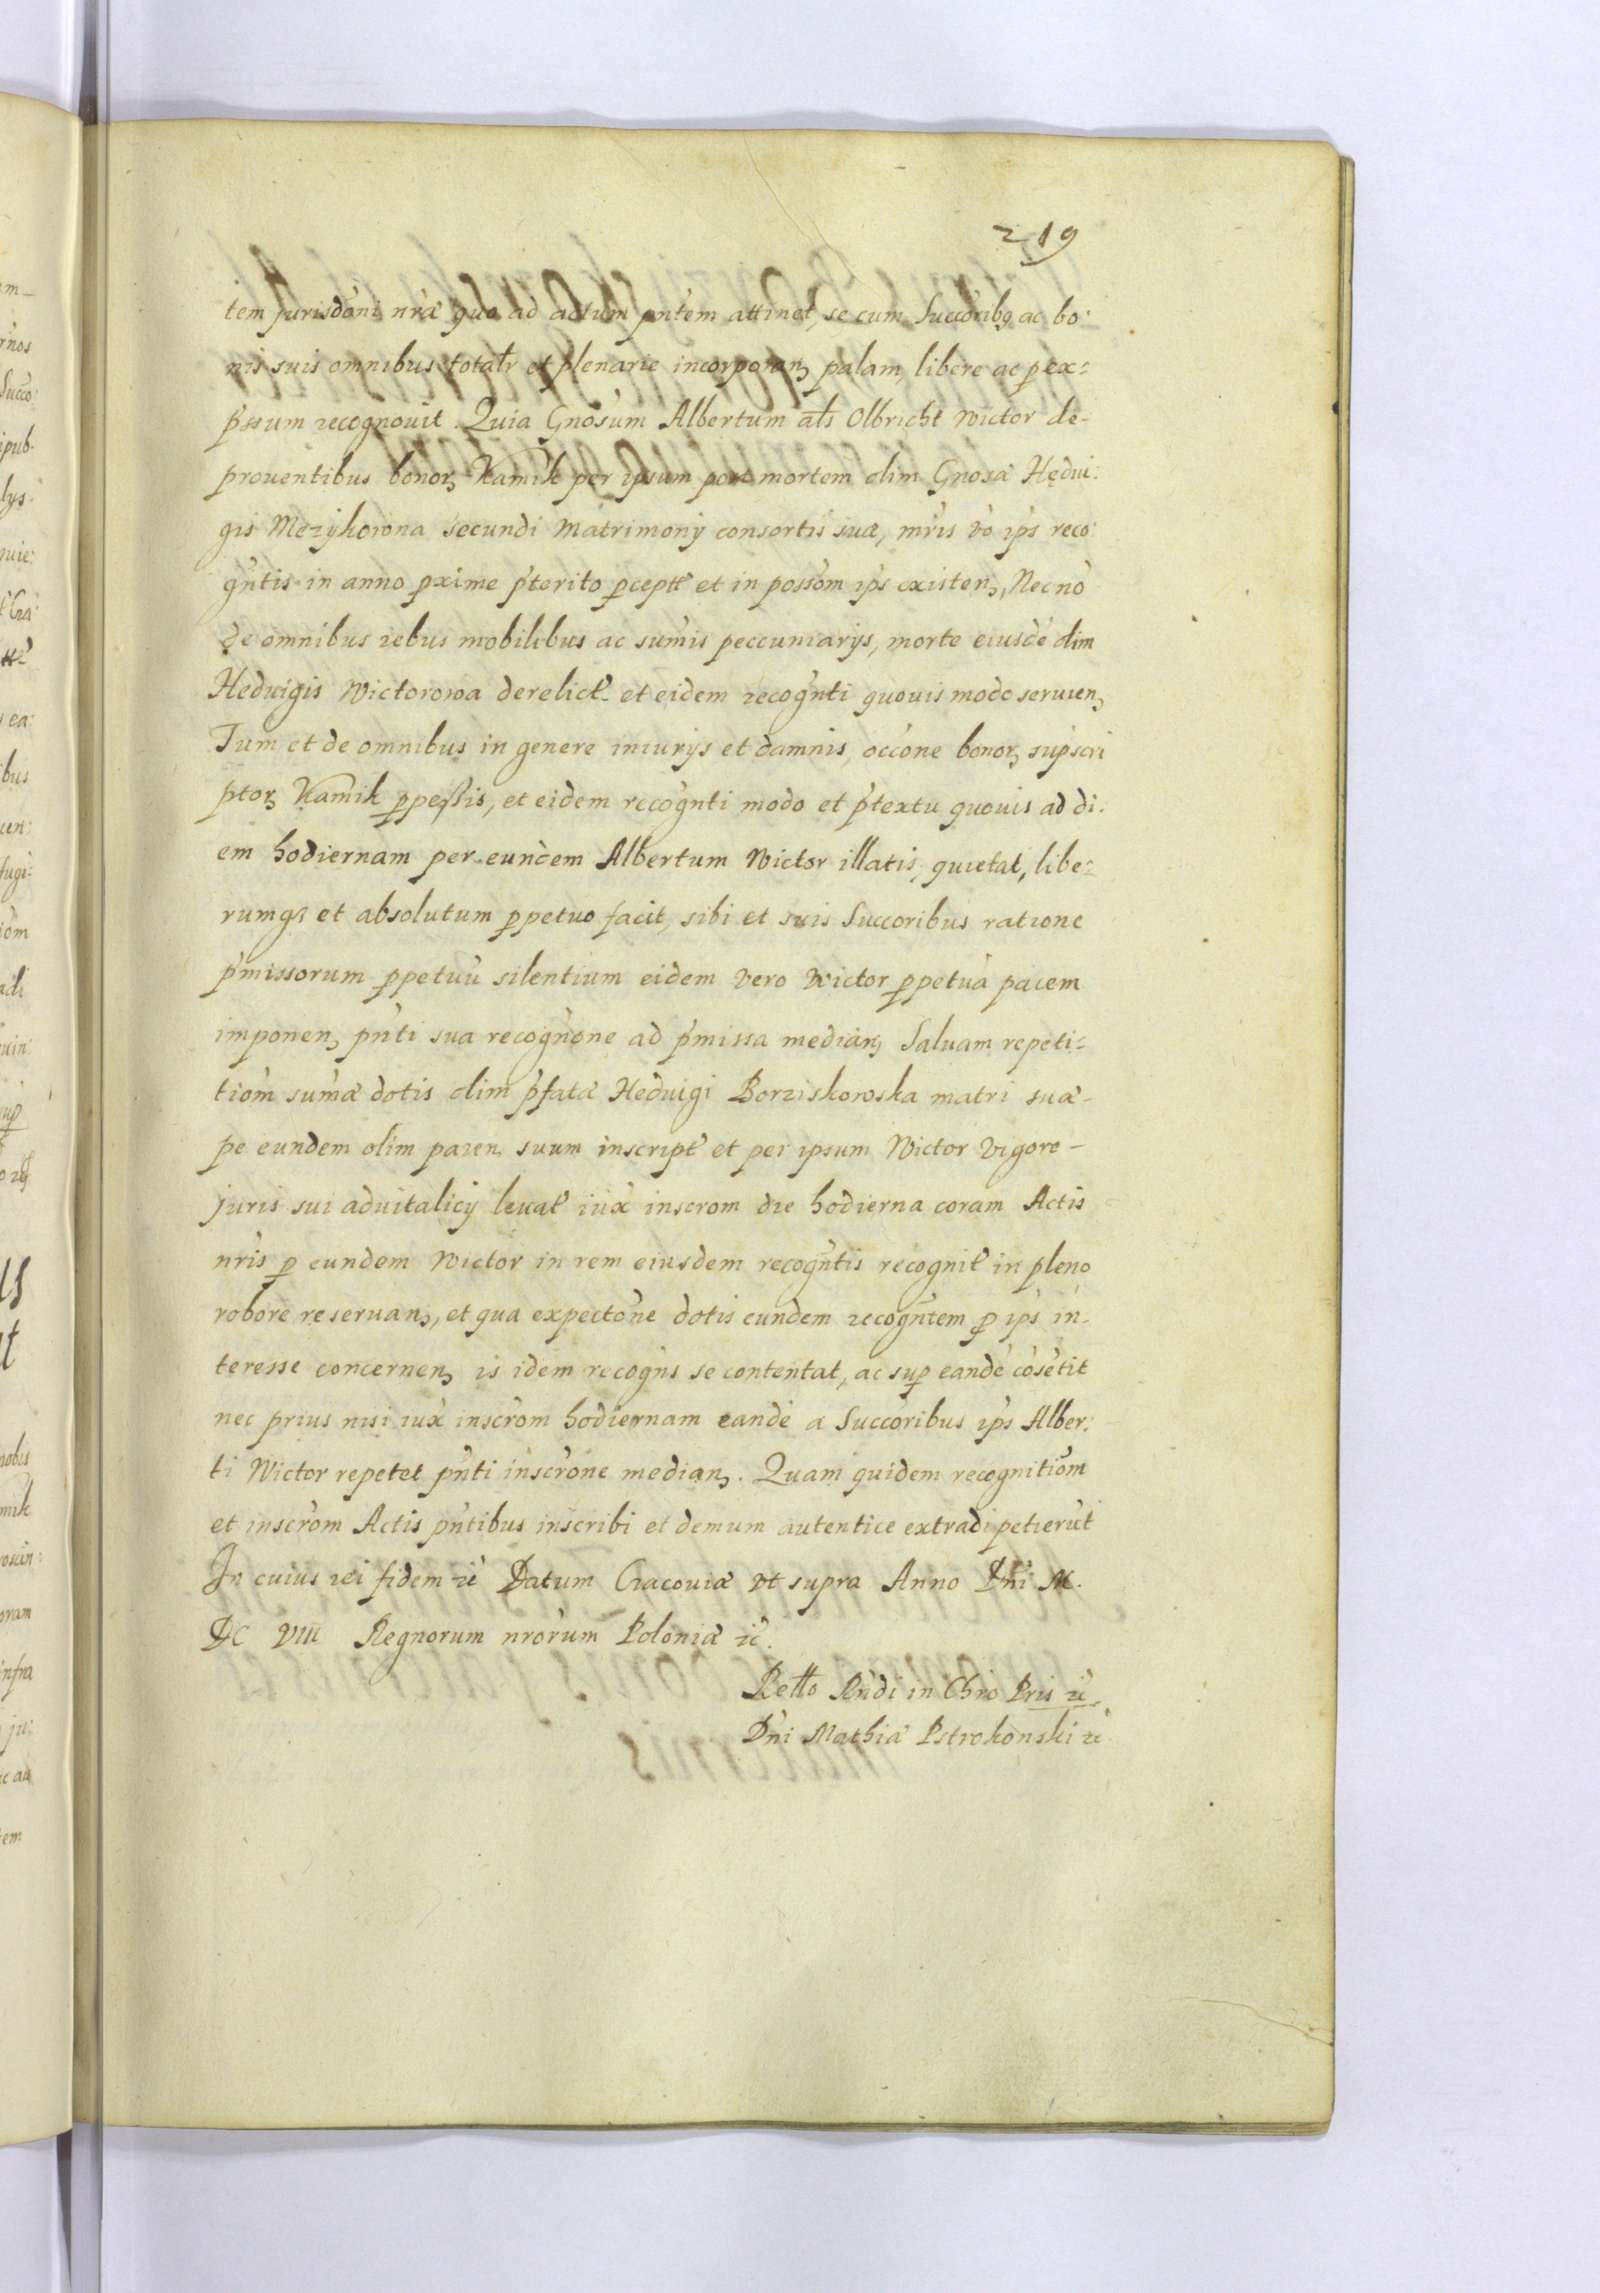 219
tem Jurisdóni nrǽ quo ad actum pntem attinet, se cum Succoribq ac bo:
nis suis omnibus totalr et plenarie incorporanȝ palam, libere ac p ex-
pssum recognouit. Quia Gnosum Albertum als Olbricht Wictor de-
prouentibus bonorȝ Kamik per ipsum post mortem olim Gnosa Hedui:
gis Mezykowna secundi Matrimony consortis suæ, mris vo ips reco:
gntis in anno pxime pterito pcept et in possom ips existenȝ, Necno
de omnibus rebus mobilibus ac sumis peccuniarijs, morte eiusde olim
Heduigis Wictorowa derelict et eidem recognti quouis modo seruienȝ
Tum et de omnibus in genere iniurijs et damnis, occone bonorȝ supscri
ptorȝ Kamik ppessis, et eidem recognti modo et ptextu quouis ad di:
em hodiernam per eundem Albertum Wictor illatis, quietat, libe-
rumqꝫ et absolutum ppetuo facit, sibi et suis Succoribus ratione
pmissorum ppetuu silentium eidem vero Wictor ppetua pacem
imponenȝ pnti sua recognone ad pmissa medianȝ Saluam repeti-
tiom sumæ dotis olim pfatæ Heduigi Borziskowska matri suæ-
pe eundem olim paren, suum inscript et per ipsum Wictor vigore-
juris sui aduitalicij leuat iux inscrom die hodierna coram Actis
nris p eundem Wictor in rem eiusdem recogntis recognit in pleno
robore reseruanȝ, et qua expectone dotis eundem recogntem p ips in-
teresse concernenȝ is idem recogns se contentat, ac sup eande cosetit
nec prius nisi iux inscrom hodiernam eande a Succoribus ips Alber:
ti Wictor repetet pnti inscrone medianȝ. Quam quidem recognitiom
et inscrom Actis pntibus inscribi et demum autentice extradi petierut
In cuius rei fidem ꝛc Datum Cracouiæ vt supra Anno Dni M.
DC VIII Regnorum nrorum Poloniæ ꝛc.
Retto Rndi in Chro Pris ꝛc.
Dni Mathiæ Pstrokonski ꝛc